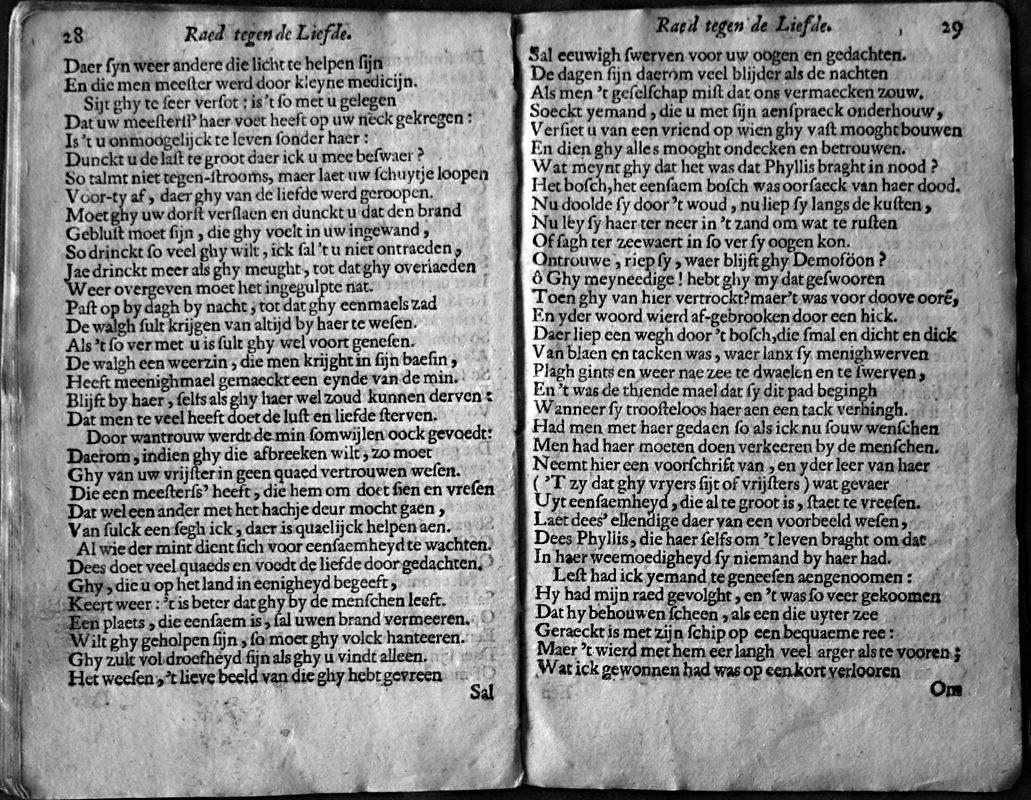 28 Raed tegen de Liefde.
Daer ſyn weer andere die licht te helpen ſijn
En die men meeſter werd door kleyne medicijn.
Sijt ghy te ſeer verſot : is 't ſo met u gelegen
Dat uw meeſterſſ' haer voet heeft op uw neck gekregen :
Is 't u onmoogelijck te leven ſonder haer :
Dunckt u de laſt te groot daer ick u mee beſwaer ?
So talmt niet tegen-ſtrooms, maer laet uw ſchuytje loopen
Voor-ty af, daer ghy van de liefde werd geroopen.
Moet ghy uw dorſt verſlaen en dunckt u dat den brand
Gebluſt moet ſijn, die ghy voelt in uw ingewand,
So drinckt ſo veel ghy wilt, ick ſal 't u niet ontraeden,
Jae drinckt meer als ghy meught, tot dat ghy overlaeden
Weer overgeven moet het ingegulpte nat.
Paſt op by dagh by nacht, tot dat ghy eenmaels zad
De walgh ſult krijgen van altijd by haer te weſen.
Als 't ſo ver met u is ſult ghy wel voort geneſen.
De walgh een weerzin, die men krijght in ſijn baeſin,
Heeft meenighmael gemaeckt een eynde van de min.
Blijft by haer, ſelfs als ghy haer wel zoud kunnen derven :
Dat men te veel heeft doet de luſt en liefde ſterven.
Door wantrouw werdt de min ſomwijlen oock gevoedt:
Daerom, indien ghy die afbreeken wilt, zo moet
Ghy van uw vrijſter in geen quaed vertrouwen weſen.
Die een meeſterſs' heeft, die hem om doet ſien en vreſen
Dat wel een ander met het hachje deur mocht gaen,
Van ſulck een ſegh ick, daer is quaelijck helpen aen.
Al wie der mint dient ſich voor eenſaemheyd te wachten.
Dees doet veel quaeds en voedt de liefde door gedachten.
Ghy, die u op het land in eenigheyd begeeft,
Keert weer : 't is beter dat ghy by de menſchen leeft.
Een plaets, die eenſaem is, ſal uwen brand vermeeren.
Wilt ghy geholpen ſijn, ſo moet ghy volck hanteeren.
Ghy zult vol droefheyd ſijn als ghy u vindt alleen.
Het weeſen, 't lieve beeld van die ghy hebt gevreen
Sal
Raed tegen de Liefde. 29
Sal eeuwigh ſwerven voor uw oogen en gedachten.
De dagen ſijn daerom veel blijder als de nachten
Als men 't geſelſchap miſt dat ons vermaecken zouw.
Soeckt yemand, die u met ſijn aenſpraeck onderhouw,
Verſiet u van een vriend op wien ghy vaſt mooght bouwen
En dien ghy alles mooght ondecken en betrouwen.
Wat meynt ghy dat het was dat Phyllis braght in nood ?
Het boſch, het eenſaem boſch was oorſaeck van haer dood.
Nu doolde ſy door 't woud, nu liep ſy langs de kuſten,
Nu ley ſy haer ter neer in 't zand om wat te ruſten
Of ſagh ter zeewaert in ſo ver ſy oogen kon.
Ontrouwe, riep ſy, waer blijft ghy Demoföon ?
ô Ghy meyneedige ! hebt ghy my dat geſwooren
Toen ghy van hier vertrockt? maer 't was voor doove oorē,
En yder woord wierd af-gebrooken door een hick.
Daer liep een wegh door 't boſch, die ſmal en dicht en dick
Van blaen en tacken was, waer lanx ſy menighwerven
Plagh gints en weer nae zee te dwaelen en te ſwerven,
En 't was de thiende mael dat ſy dit pad begingh
Wanneer ſy trooſteloos haer aen een tack verhingh.
Had men met haer gedaen ſo als ick nu ſouw wenſchen
Men had haer moeten doen verkeeren by de menſchen.
Neemt hier een voorſchrift van, en yder leer van haer
( 'T zy dat ghy vryers ſijt of vrijſters ) wat gevaer
Uyt eenſaemheyd, die al te groot is, ſtaet te vreeſen.
Laet dees' ellendige daer van een voorbeeld weſen,
Dees Phyllis, die haer ſelfs om 't leven braght om dat
In haer weemoedigheyd ſy niemand by haer had.
Leſt had ick yemand te geneeſen aengenoomen :
Hy had mijn raed gevolght, en 't was ſo veer gekoomen
Dat hy behouwen ſcheen, als een die uyter zee
Geraeckt is met zijn ſchip op een bequaeme ree :
Maer 't wierd met hem eer langh veel arger als te vooren ;
Wat ick gewonnen had was op een kort verlooren
Om